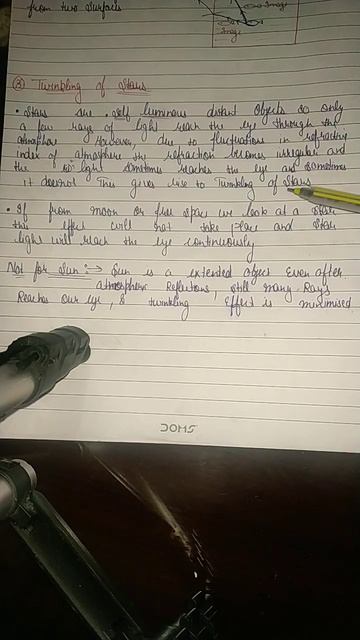 from two surfaces
Image
Image
(8) Twinkling of Stars
• Stars are self luminous distant objects so only
a few rays of light reach the eye through the
atmosphere However, due to fluctuations in refractive
index of atmosphere the refraction becomes irregular and
the light sometimes reaches the eye and sometimes
it doesnot This gives rise to Twinkling of Stars
• If from moon or free space we look at a star
this effect will not take place and star
light will reach the eye continuously
Not for Sun :→ Sun is a extended Object Even after
atmospheric Refractions, still many Rays
Reaches Our Eye, & twinkling Effect is minimised
DOMS